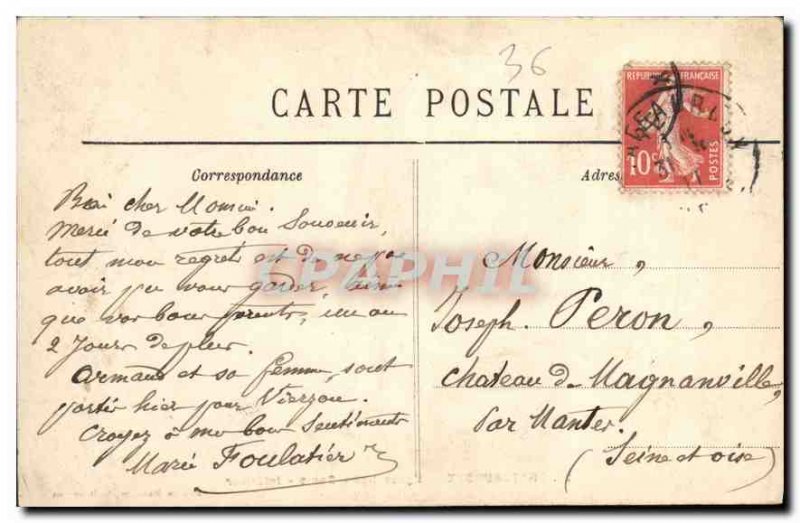 36
CARTE POSTALE
REPUBLIQUE FRANÇAISE
10c POSTES
Correspondance
Adres
cher Monsieur.
Merci de votre bon Souvenir,
tout mon regret est de ne pas
avoir pu vous garder, ainsi
que vos bons parents, un ou
2 Jours de plus.
Armand et sa femme, sont
partis hier pour Vierzon.
Croyez à mes bons Sentiments
Marie Foulatier
CPAPHIL
Monsieur,
Joseph. Peron,
Chateau de Magnanville,
Par Mantes.
(Seine et oise)